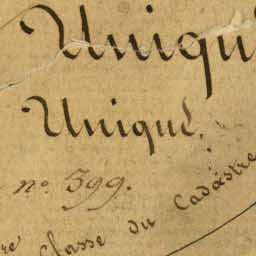 Unique
Unique.
no. 399.
re Classe du Cadastre